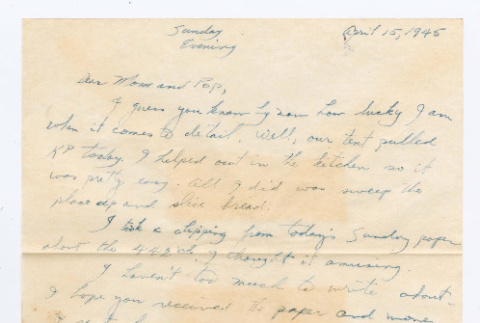 Sunday April 15, 1945
Evening
Dear Mom and Pop,
I guess you know by now how lucky I am
when it comes to detail. Well, our tent pulled
KP today. I helped out in the kitchen so it
was pretty easy. All I did was sweep the
place up and slice bread.
I a clipping from today's Sunday paper
about the 442nd. I thought it amusing.
I haven't too much to write about.
I hope you received the paper and
I